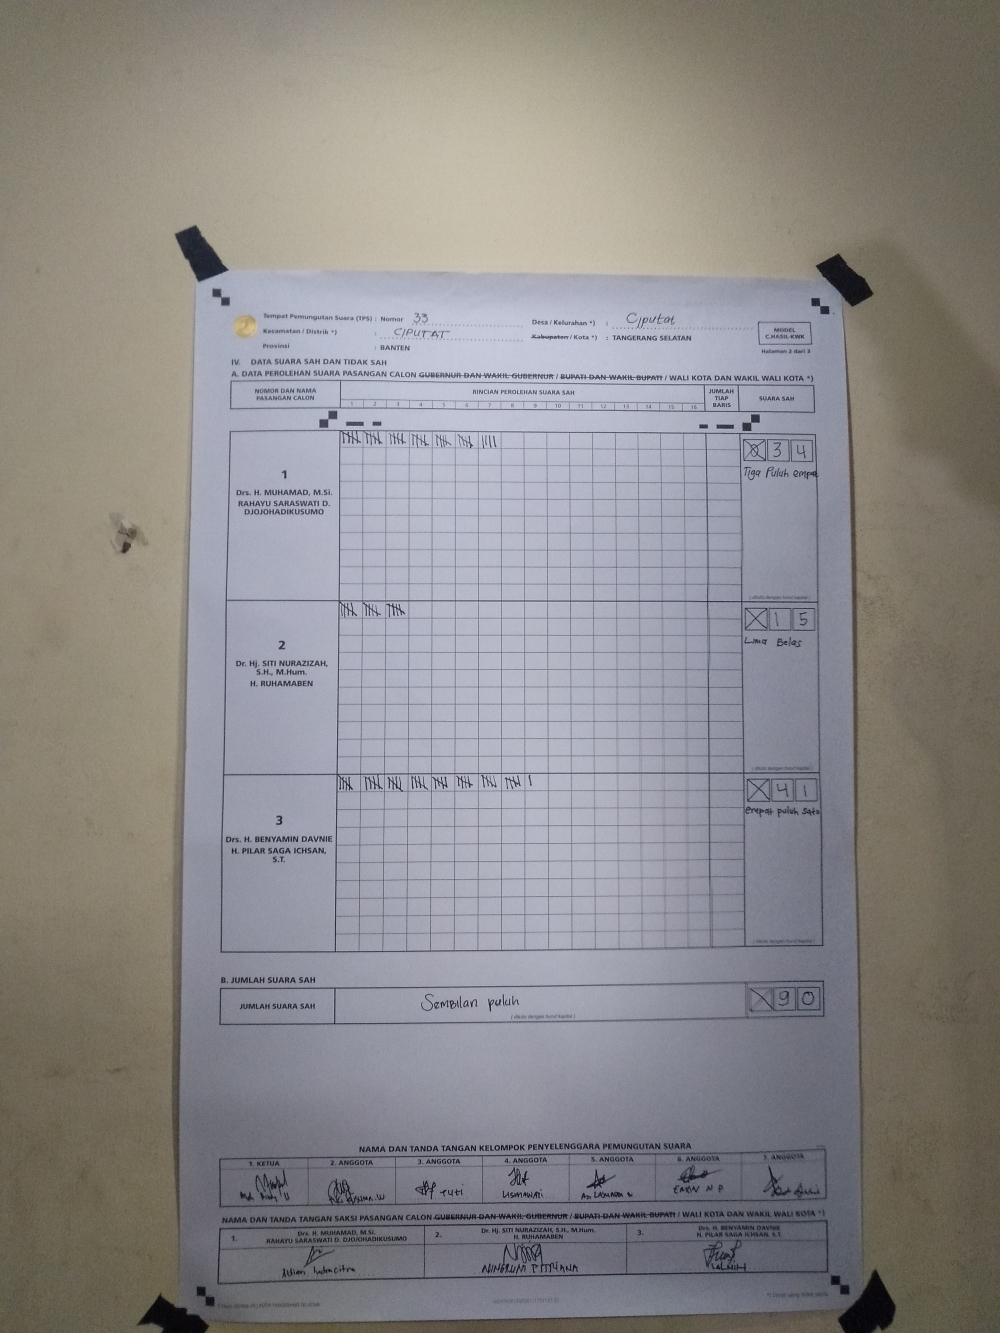 Tempat Pemungutan Suara (TPS) : Nomor 33
Desa / Kelurahan *) : Ciputat
Kecamatan / Distrik *) : CIPUTAT
Kabupaten / Kota *) : TANGERANG SELATAN
Provinsi : BANTEN
MODEL
C.HASIL-KWK
Halaman 2 dari 3
IV. DATA SUARA SAH DAN TIDAK SAH
A. DATA PEROLEHAN SUARA PASANGAN CALON GUBERNUR DAN WAKIL GUBERNUR / BUPATI DAN WAKIL BUPATI / WALI KOTA DAN WAKIL WALI KOTA *)
NOMOR DAN NAMA
PASANGAN CALON
RINCIAN PEROLEHAN SUARA SAH
1 2 3 4 5 6 7 8 9 10 11 12 13 14 15 16
JUMLAH
TIAP
BARIS
SUARA SAH
1
Drs. H. MUHAMAD, M.Si.
RAHAYU SARASWATI D.
DJOJOHADIKUSUMO
34
Tiga Puluh empat
( ditulis dengan huruf kapital )
2
Dr. Hj. SITI NURAZIZAH,
S.H., M.Hum.
H. RUHAMABEN
15
Lima Belas
( ditulis dengan huruf kapital )
3
Drs. H. BENYAMIN DAVNIE
H. PILAR SAGA ICHSAN,
S.T.
41
empat puluh satu
( ditulis dengan huruf kapital )
B. JUMLAH SUARA SAH
JUMLAH SUARA SAH
Sembilan puluh
( ditulis dengan huruf kapital )
90
NAMA DAN TANDA TANGAN KELOMPOK PENYELENGGARA PEMUNGUTAN SUARA
1. KETUA 2. ANGGOTA 3. ANGGOTA 4. ANGGOTA 5. ANGGOTA 6. ANGGOTA 7. ANGGOTA
TUTI
LISMAWATI
NAMA DAN TANDA TANGAN SAKSI PASANGAN CALON GUBERNUR DAN WAKIL GUBERNUR / BUPATI DAN WAKIL BUPATI / WALI KOTA DAN WAKIL WALI KOTA *)
1. Drs. H. MUHAMAD, M.Si.
RAHAYU SARASWATI D. DJOJOHADIKUSUMO
2. Dr. Hj. SITI NURAZIZAH, S.H., M.Hum.
H. RUHAMABEN
3. Drs. H. BENYAMIN DAVNIE
H. PILAR SAGA ICHSAN, S.T.
NINGRUM FITRIANA